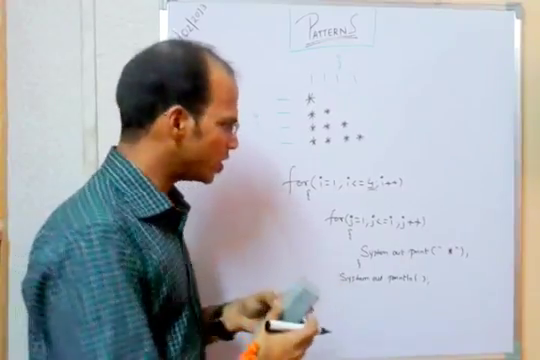 /02/2013
PATTERNS
*
* *
* * *
* * * *
for(i=1, i<=4, i++)
{
for(j=1, j<=i, j++)
{
System out print(" *"),
}
System out println( ),